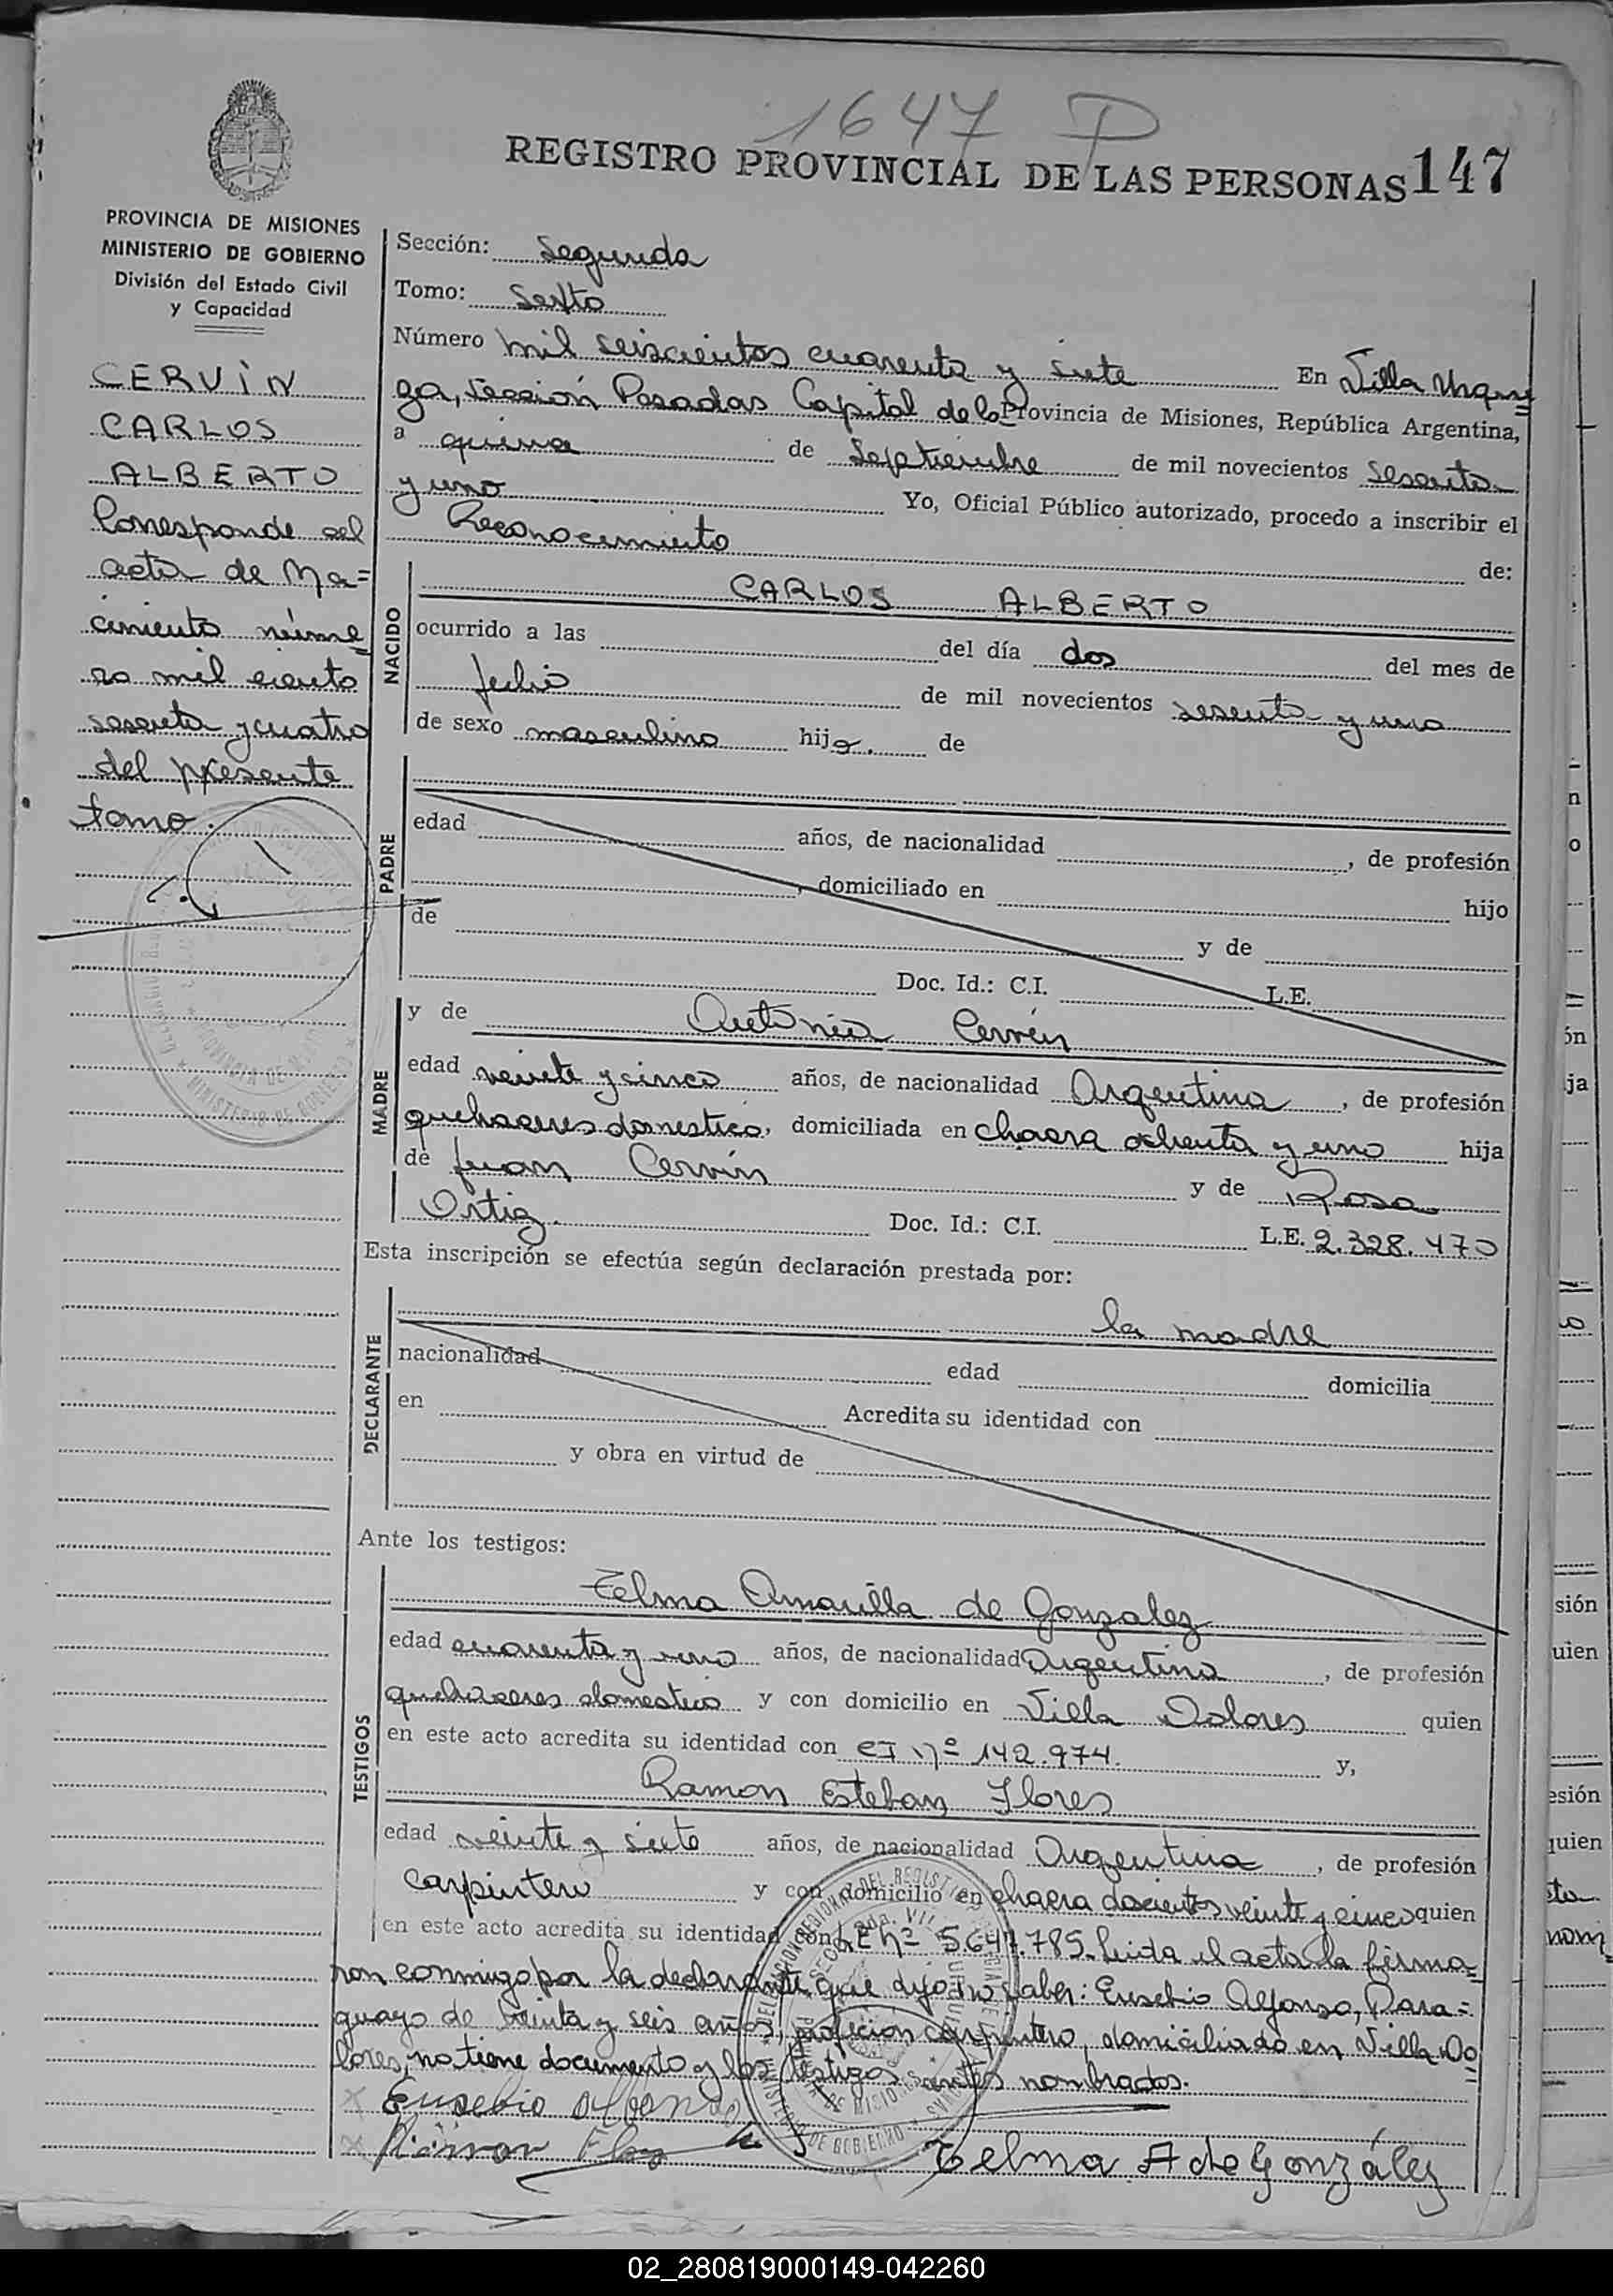 1647 P
REGISTRO PROVINCIAL DE LAS PERSONAS 147
PROVINCIA DE MISIONES
MINISTERIO DE GOBIERNO
División del Estado Civil
y Capacidad
CERVÍN
CARLOS
ALBERTO
Corresponde al
acta de Na=
cimiento núme=
ro mil ciento
sesenta y cuatro
del presente
tomo.
Sección: Segunda
Tomo: Sexto
Número mil seiscientos cuarenta y siete En Villa Urqui=
za, Sección Posadas Capital de la Provincia de Misiones, República Argentina,
a quince de Septiembre de mil novecientos sesenta
y uno Yo, Oficial Público autorizado, procedo a inscribir el
Reconocimiento de:
NACIDO
CARLOS ALBERTO
ocurrido a las del día dos del mes de
Julio de mil novecientos sesenta y uno
de sexo masculino hijo. de
PADRE
edad años, de nacionalidad , de profesión
, domiciliado en hijo
de y de
Doc. Id.: C.I. L.E.
MADRE
y de Antonia Cervín
edad veinte y cinco años, de nacionalidad Argentina, de profesión
quehaceres domestico, domiciliada en chacra ochenta y uno hija
de Juan Cervín y de Rosa
Ortiz. Doc. Id.: C.I. L.E. 2.328.470
Esta inscripción se efectúa según declaración prestada por:
DECLARANTE
la madre
nacionalidad edad domicilia
en Acredita su identidad con
y obra en virtud de
Ante los testigos:
TESTIGOS
Telma Amarilla de Gonzalez
edad cuarenta y uno años, de nacionalidad Argentina, de profesión
quehaceres domestico y con domicilio en Villa Dolores quien
en este acto acredita su identidad con CI Nº 142.974. y,
Ramon Esteban Flores
edad veinte y siete años, de nacionalidad Argentina, de profesión
carpintero y con domicilio en chacra docientos veinte y cinco quien
en este acto acredita su identidad con LE nº 5.647.785. Leida el acta la firma=
ron conmigo por la declarante que dijo no saber: Eusebio Alfonso, Para=
guayo de treinta y seis años, profecion carpintero, domiciliado en Villa Do=
lores, no tiene documento y los testigos antes nombrados.
Eusebio Alfonso
Ramon Flores
Telma A de González
02_280819000149-042260